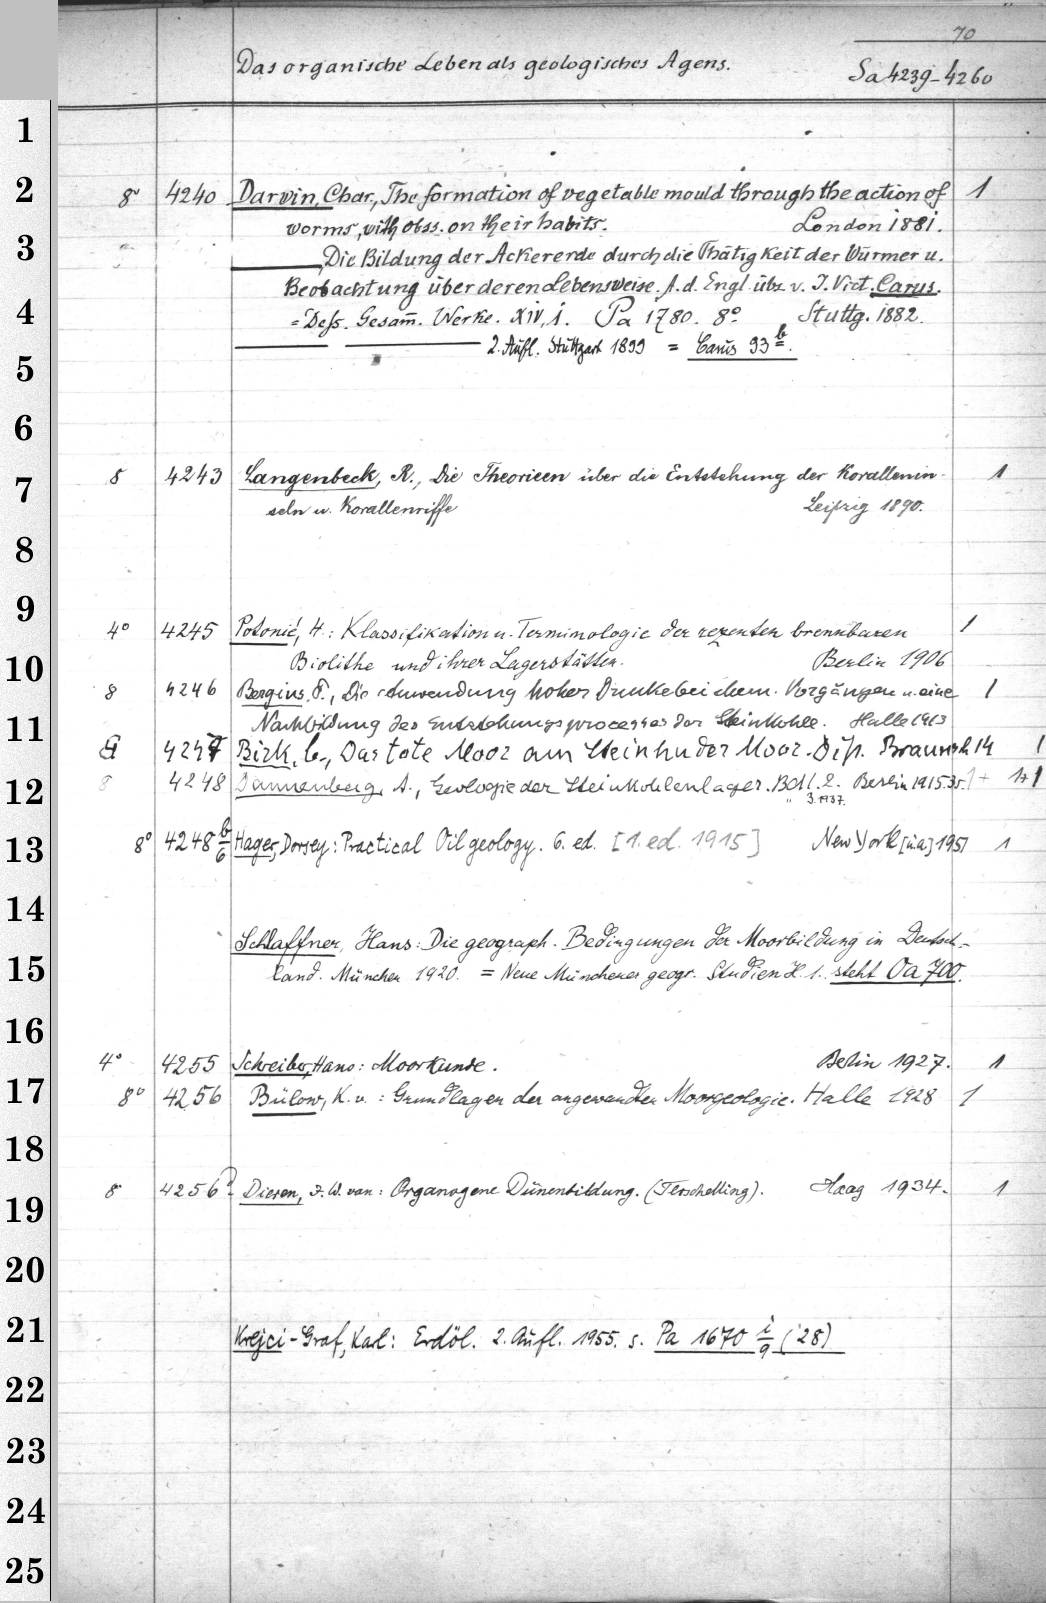 70
Das organische Leben als geologisches Agens. Sa 4239-4260
1
2 8° 4240 Darwin, Char., The formation of vegetable mould through the action of 1
worms, with obss. on their habits. London 1881.
3 Die Bildung der Ackererde durch die Thätigkeit der Würmer u.
Beobachtung über deren Lebensweise. A. d. Engl. übs. v. J. Vict. Carus.
4 = Dess. Gesam̄. Werke. XIV, 1. Pa 1780. 8° Stuttg. 1882.
2. Aufl. Stuttgart 1899 = Carus 93 b.
5
6
7 8 4243 Langenbeck, R., Die Theorieen über die Entstehung der Korallenin- 1
seln u. Korallenriffe Leipzig 1890.
8
9
4° 4245 Potonié, H.: Klassifikation u. Terminologie der rezenten brennbaren 1
10 Biolithe und ihrer Lagerstätten. Berlin 1906
8 4246 Bergius, F., Die Anwendung hoher Drucke bei chem. Vorgängen u. eine 1
11 Nachbildung des Entstehungsprocesses der Steinkohle. Halle 1913
4247 Birk, C., Das tote Moor am Steinhuder Meer. Diss. Braunsch. 14 1
12 8 4248 Dannenberg, A., Geologie der Steinkohlenlager. Bd 1. 2. Berlin 1915.35. 1+1
" 3. 1937.
13 8° 4248 b/6 Hager, Dorsey: Practical Oil geology. 6. ed. [1. ed. 1915] New York [u.a.] 1951 1
14
Schlaffner, Hans: Die geograph. Bedingungen der Moorbildung in Deutsch-
15 land. München 1920. = Neue Münchener geogr. Studien H. 1. steht Oa 700.
16
4° 4255 Schreiber, Hans: Moorkunde. Berlin 1927. 1
17 8° 4256 Bülow, K. v.: Grundlagen der angewandten Moorgeologie. Halle 1928 1
18
8 4256 Dieren, J. W. van: Organogene Dünenbildung. (Terschelling). Haag 1934. 1
19
20
21 Krejci-Graf, Karl: Erdöl. 2. Aufl. 1955. s. Pa 1670 i/9 (28)
22
23
24
25